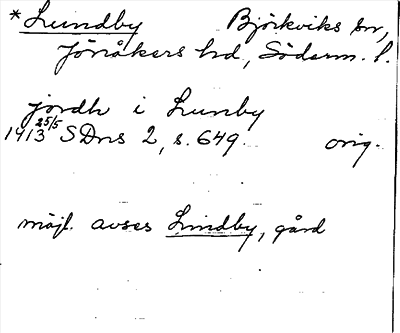 *Lundby Björkviks sn,
Jönåkers hd, Söderm. l.
jordh i Lunby
1413 25/5 SDns 2, s. 649. orig.
möjl. avses Lindby, gård